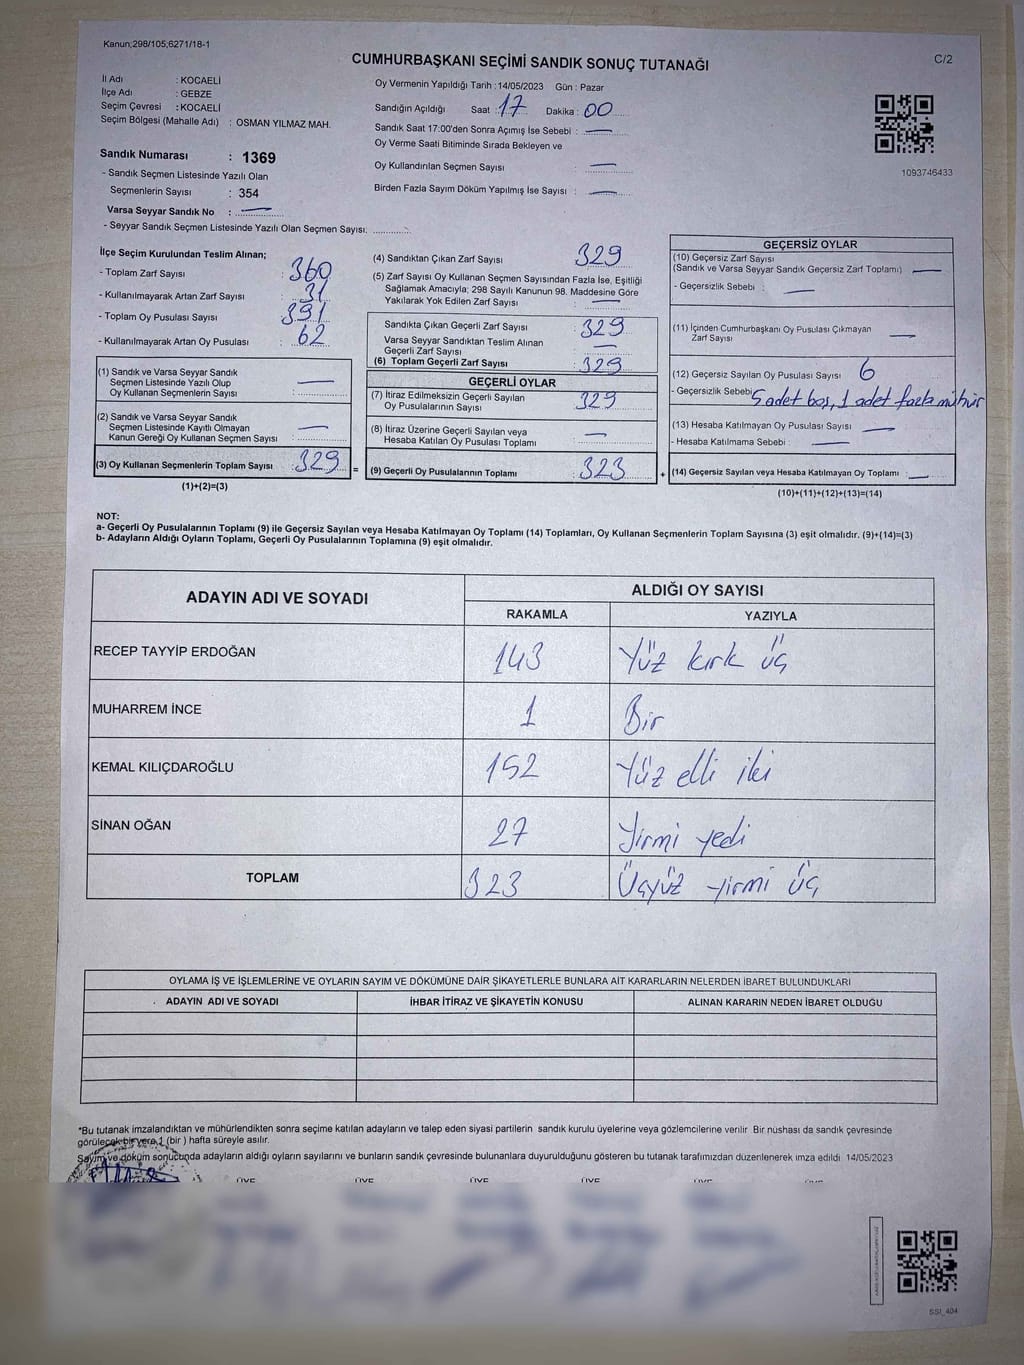 Kanun;298/105;6271/18-1
CUMHURBAŞKANI SEÇİMİ SANDIK SONUÇ TUTANAĞI
C/2
İl Adı : KOCAELİ
İlçe Adı : GEBZE
Seçim Çevresi : KOCAELİ
Seçim Bölgesi (Mahalle Adı) : OSMAN YILMAZ MAH.
Sandık Numarası : 1369
- Sandık Seçmen Listesinde Yazılı Olan
Seçmenlerin Sayısı : 354
Varsa Seyyar Sandık No : —
- Seyyar Sandık Seçmen Listesinde Yazılı Olan Seçmen Sayısı:
Oy Vermenin Yapıldığı Tarih : 14/05/2023 Gün : Pazar
Sandığın Açıldığı Saat : 17 Dakika : 00
Sandık Saat 17:00'den Sonra Açımış İse Sebebi : —
Oy Verme Saati Bitiminde Sırada Bekleyen ve
Oy Kullandırılan Seçmen Sayısı : —
Birden Fazla Sayım Döküm Yapılmış İse Sayısı : —
1093746433
İlçe Seçim Kurulundan Teslim Alınan;
- Toplam Zarf Sayısı : 360
- Kullanılmayarak Artan Zarf Sayısı : 31
- Toplam Oy Pusulası Sayısı : 391
- Kullanılmayarak Artan Oy Pusulası : 62
(1) Sandık ve Varsa Seyyar Sandık
Seçmen Listesinde Yazılı Olup
Oy Kullanan Seçmenlerin Sayısı : —
(2) Sandık ve Varsa Seyyar Sandık
Seçmen Listesinde Kayıtlı Olmayan
Kanun Gereği Oy Kullanan Seçmen Sayısı : —
(3) Oy Kullanan Seçmenlerin Toplam Sayısı : 329
(1)+(2)=(3)
(4) Sandıktan Çıkan Zarf Sayısı : 329
(5) Zarf Sayısı Oy Kullanan Seçmen Sayısından Fazla İse, Eşitliği
Sağlamak Amacıyla; 298 Sayılı Kanunun 98. Maddesine Göre
Yakılarak Yok Edilen Zarf Sayısı : —
Sandıkta Çıkan Geçerli Zarf Sayısı : 329
Varsa Seyyar Sandıktan Teslim Alınan
Geçerli Zarf Sayısı : —
(6) Toplam Geçerli Zarf Sayısı : 329
GEÇERLİ OYLAR
(7) İtiraz Edilmeksizin Geçerli Sayılan
Oy Pusulalarının Sayısı : 329
(8) İtiraz Üzerine Geçerli Sayılan veya
Hesaba Katılan Oy Pusulası Toplamı : —
= (9) Geçerli Oy Pusulalarının Toplamı : 323
GEÇERSİZ OYLAR
(10) Geçersiz Zarf Sayısı
(Sandık ve Varsa Seyyar Sandık Geçersiz Zarf Toplamı) —
- Geçersizlik Sebebi : —
(11) İçinden Cumhurbaşkanı Oy Pusulası Çıkmayan
Zarf Sayısı —
(12) Geçersiz Sayılan Oy Pusulası Sayısı : 6
- Geçersizlik Sebebi 5 adet boş, 1 adet fazla mühür
(13) Hesaba Katılmayan Oy Sayısı : —
- Hesaba Katılmama Sebebi : —
+ (14) Geçersiz Sayılan veya Hesaba Katılmayan Oy Toplamı : —
(10)+(11)+(12)+(13)=(14)
NOT:
a- Geçerli Oy Pusulalarının Toplamı (9) ile Geçersiz Sayılan veya Hesaba Katılmayan Oy Toplamı (14) Toplamları, Oy Kullanan Seçmenlerin Toplam Sayısına (3) eşit olmalıdır. (9)+(14)=(3)
b- Adayların Aldığı Oyların Toplamı, Geçerli Oy Pusulalarının Toplamına (9) eşit olmalıdır.
ADAYIN ADI VE SOYADI
ALDIĞI OY SAYISI
RAKAMLA YAZIYLA
RECEP TAYYİP ERDOĞAN 143 Yüz kırk üç
MUHARREM İNCE 1 Bir
KEMAL KILIÇDAROĞLU 152 Yüz elli iki
SİNAN OĞAN 27 Yirmi yedi
TOPLAM 323 Üçyüz yirmi üç
OYLAMA İŞ VE İŞLEMLERİNE VE OYLARIN SAYIM VE DÖKÜMÜNE DAİR ŞİKAYETLERLE BUNLARA AİT KARARLARIN NELERDEN İBARET BULUNDUKLARI
ADAYIN ADI VE SOYADI İHBAR İTİRAZ VE ŞİKAYETİN KONUSU ALINAN KARARIN NEDEN İBARET OLDUĞU
*Bu tutanak imzalandıktan ve mühürlendikten sonra seçime katılan adayların ve talep eden siyasi partilerin sandık kurulu üyelerine veya gözlemcilerine verilir. Bir nüshası da sandık çevresinde
görülecek bir yere 1 (bir ) hafta süreyle asılır.
Sayım ve döküm sonucunda adayların aldığı oyların sayılarını ve bunların sandık çevresinde bulunanlara duyurulduğunu gösteren bu tutanak tarafımızdan düzenlenerek imza edildi 14/05/2023
ÜYE ÜYE ÜYE ÜYE ÜYE
SSI_404